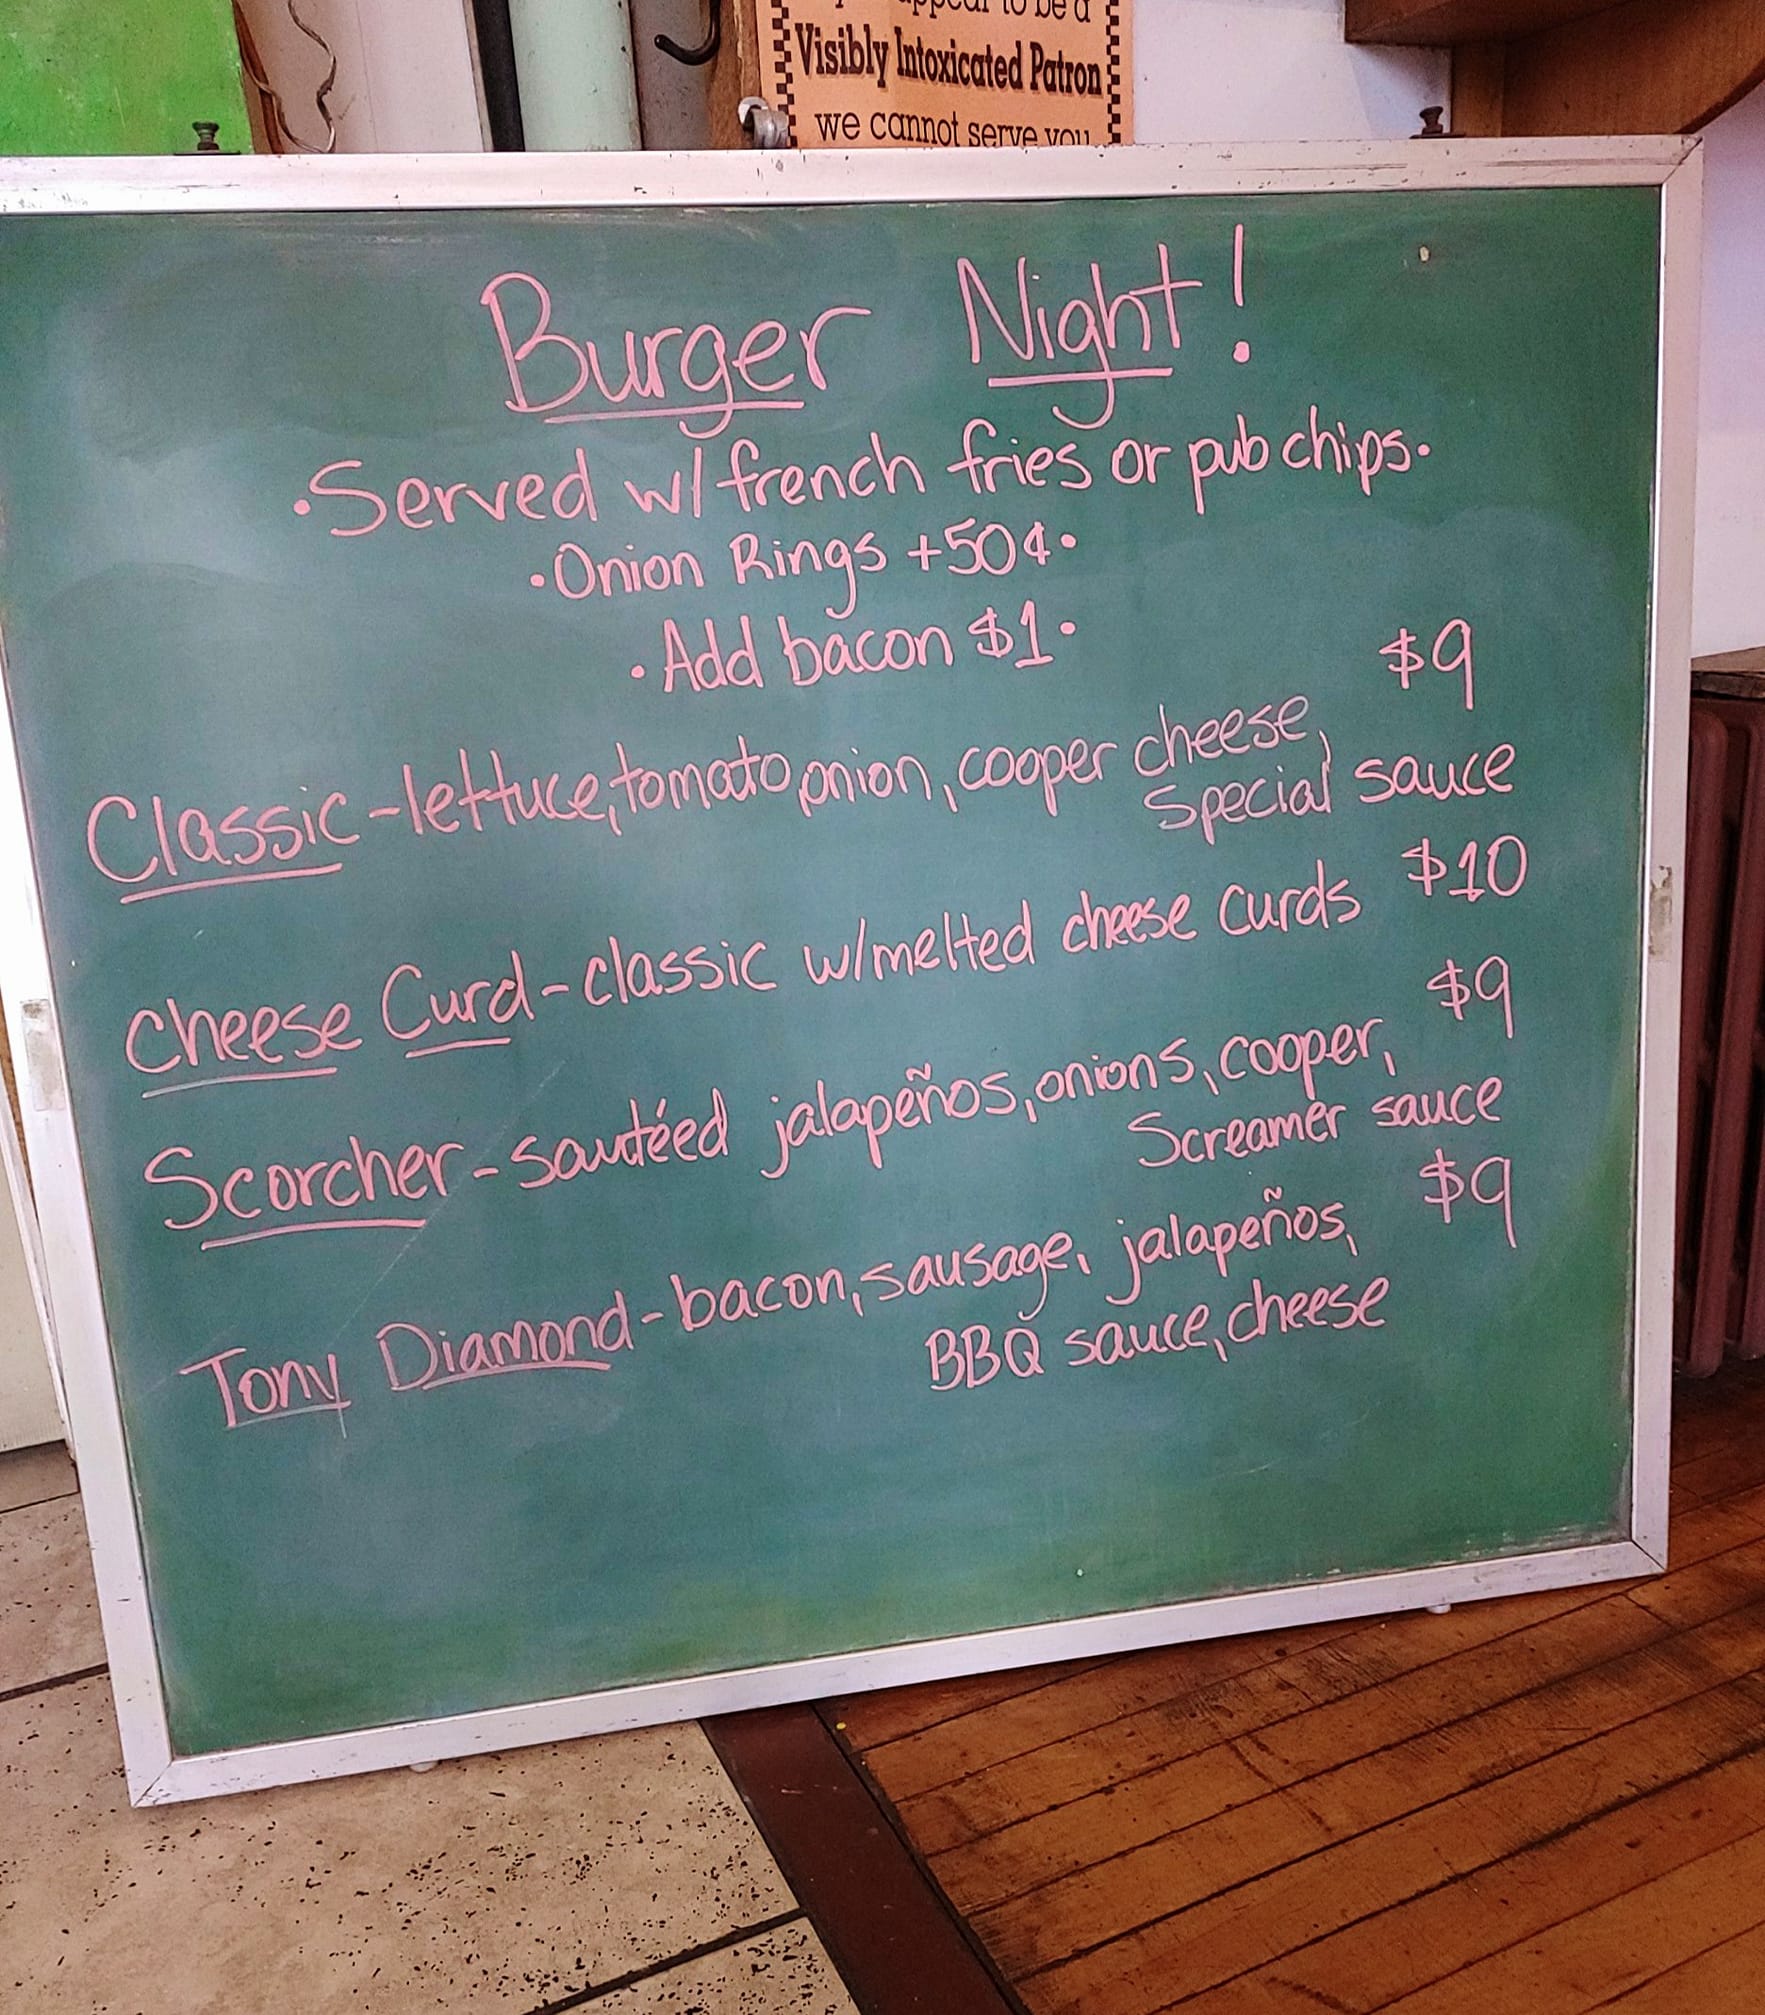 appear to be a
Visibly Intoxicated Patron
we cannot serve you
Burger Night!
•Served w/ french fries or pub chips•
•Onion Rings +50¢•
•Add bacon $1•
$9
Classic-lettuce, tomato, onion, cooper cheese,
Special sauce
Cheese Curd-classic w/melted cheese curds $10
$9
Scorcher-sautéed jalapeños, onions, cooper,
Screamer sauce
$9
Tony Diamond-bacon, sausage, jalapeños,
BBQ sauce, cheese